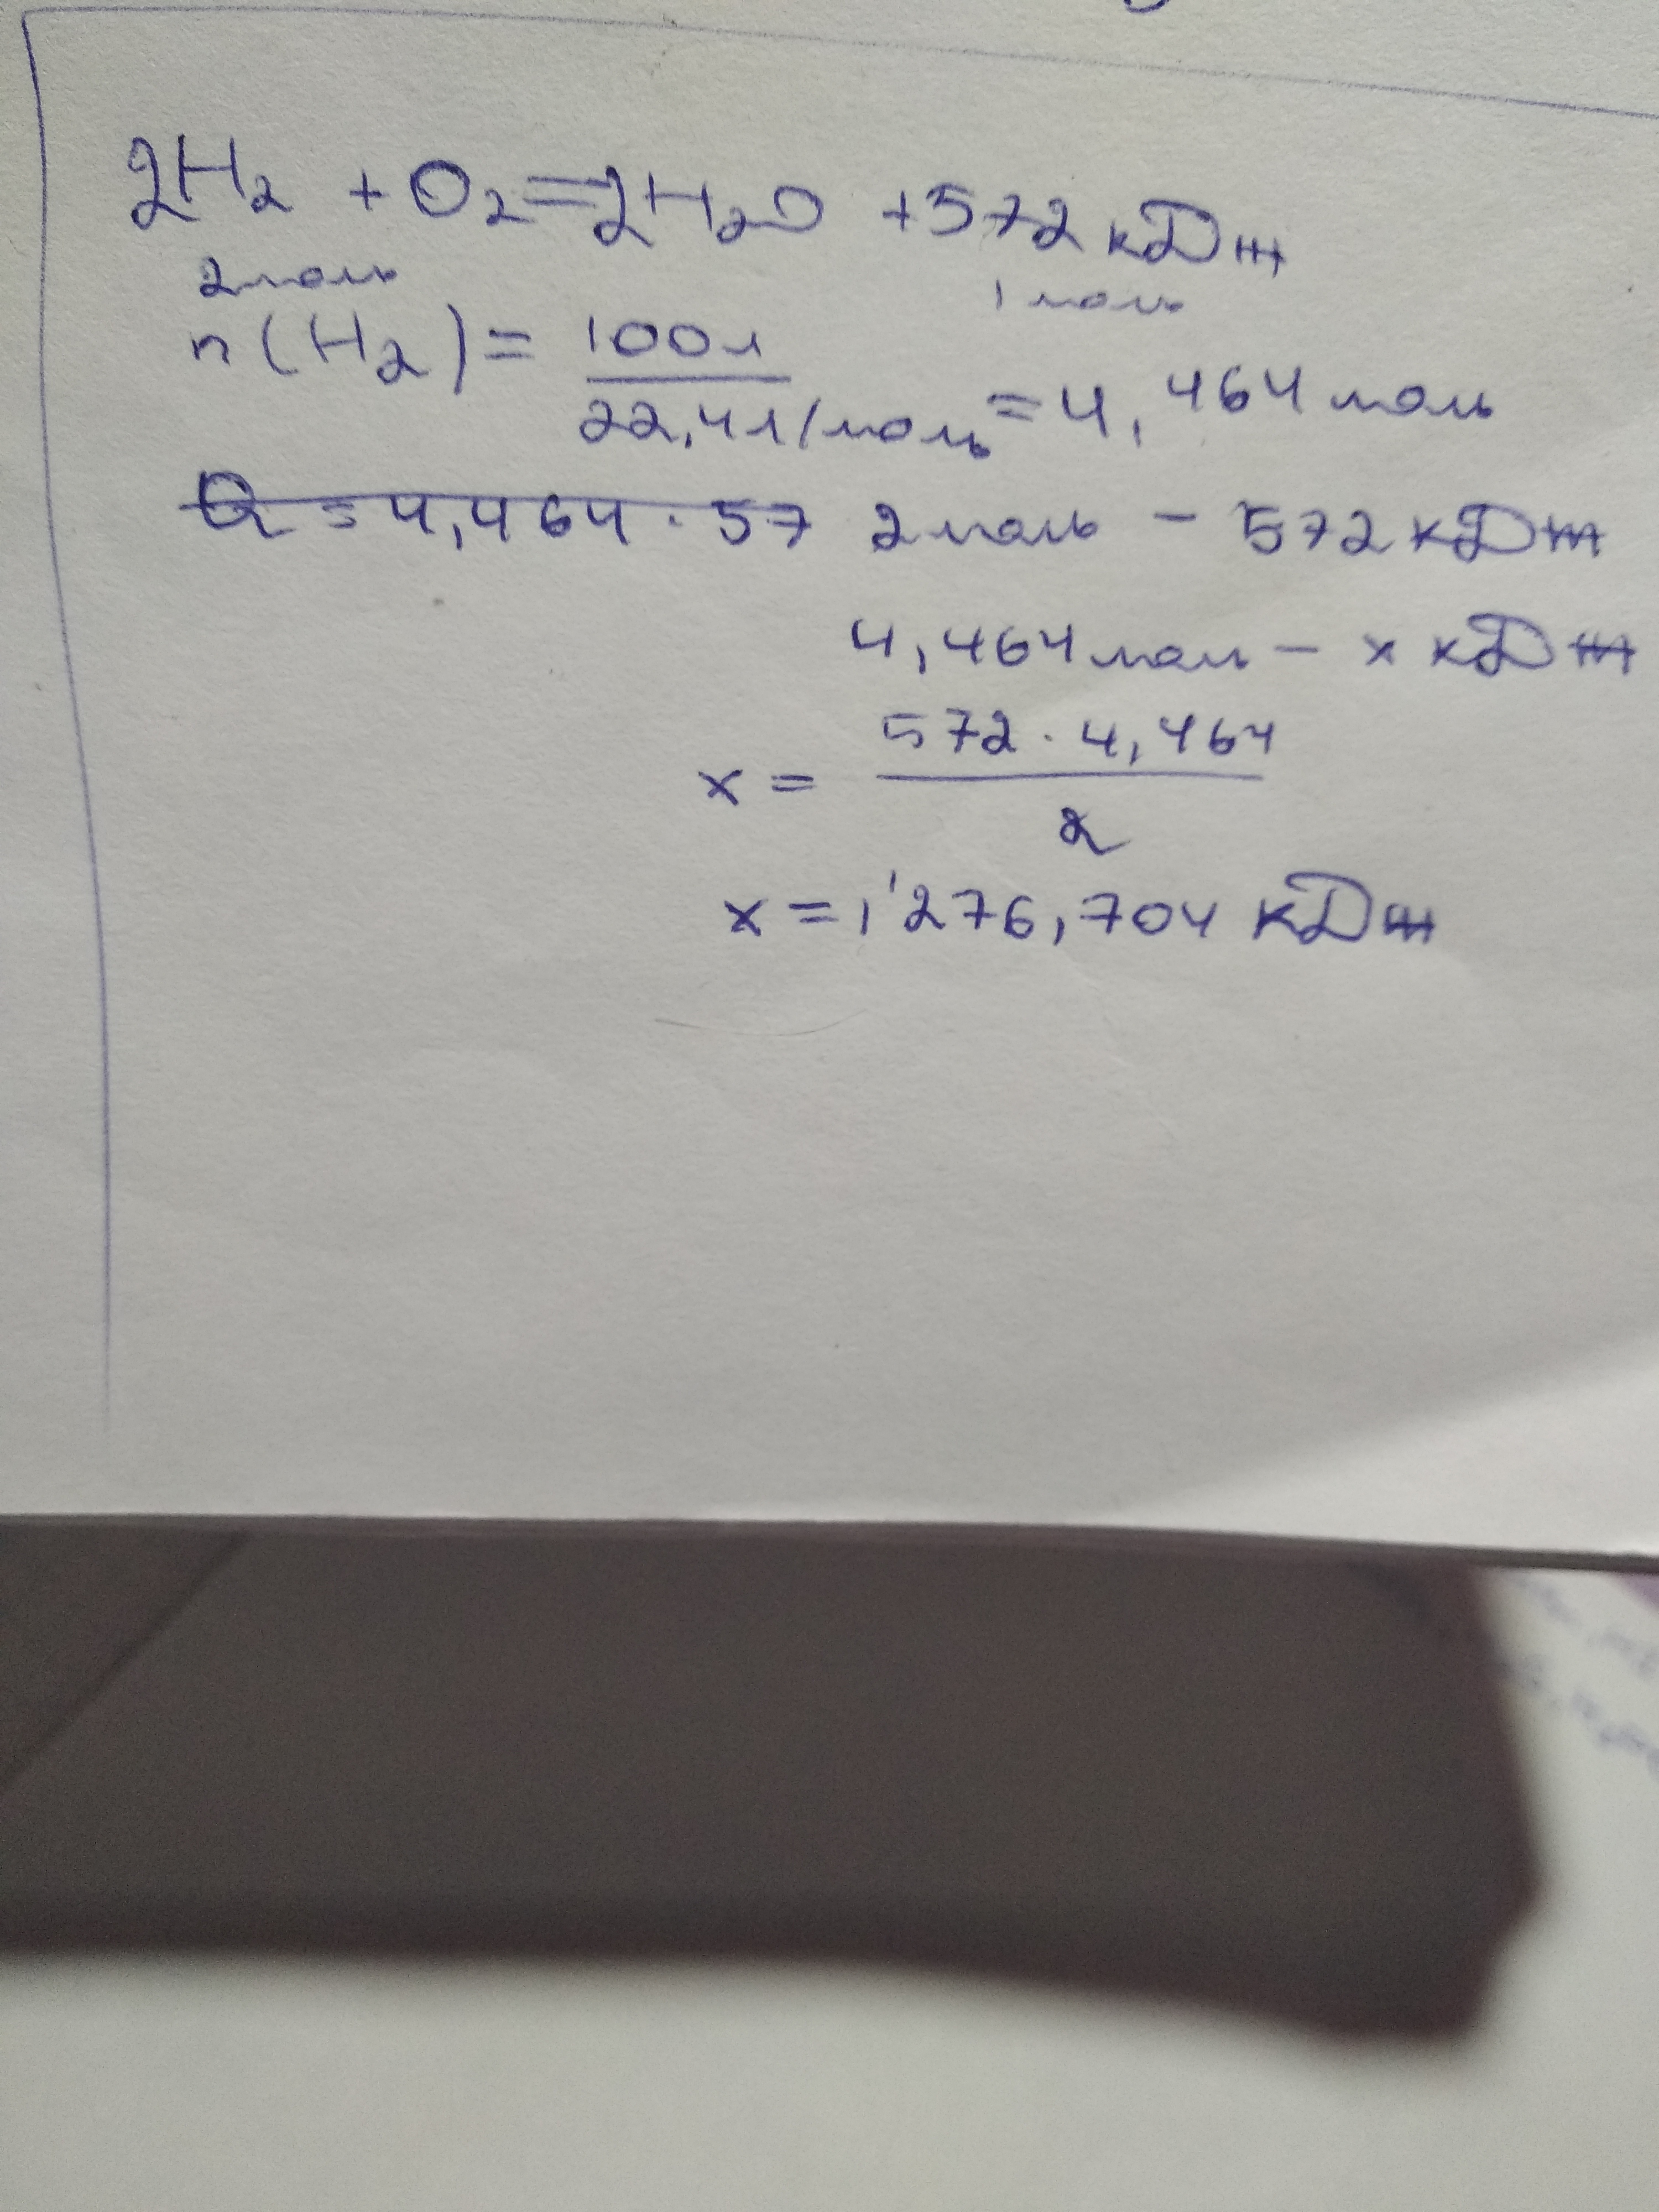 2H₂ + O₂ = 2H₂O + 572 кДж
2моль 1 моль
n(H₂) = 100л / 22,4л/моль = 4,464 моль
Q = 4,464 · 57 2 моль - 572 кДж
4,464 моль - x кДж
x = 572 · 4,464 / 2
x = 1'276,704 кДж